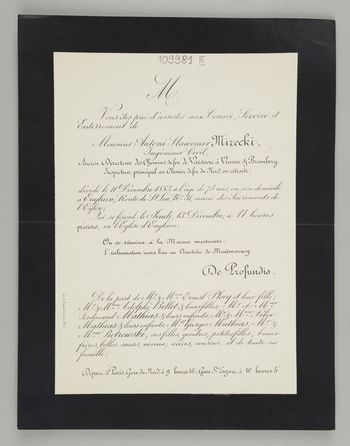 109981 III
M
Vous êtes prié d'assister aux Convoi, Service et
Enterrement de
Monsieur Antoni Slawomir Mirecki,
Ingénieur Civil,
Ancien Directeur des Chemins de fer de Varsovie à Vienne & Bromberg,
Inspecteur principal au Chemin de fer du Nord, en retraite,
décédé le 11 Décembre 1883, à l'âge de 73 ans, en son domicile
à Enghien, Route de St Leu, muni des Sacrements de
l'Église;
Qui se feront le Jeudi, 13 Décembre, à 11 heures
précises, en l'Église d'Enghien.
On se réunira à la Maison mortuaire.
L'inhumation aura lieu au Cimetière de Montmorency.
De Profundis.
De la part de Mr & Mme Ernest Ploy et leur fille,
Mr & Mme Adolphe Bellot & leurs filles, Mr & Mme
Ferdinand Mathias & leurs enfants, Mr & Mme Félix
Mathias & leurs enfants, Mr Georges Mathias, Mr &
Mme Piotrowski, ses filles, gendres, petites filles, beaux
frères, belles sœurs, neveux, nièces, cousins, et de toute sa
famille.
Départs de Paris, Gare du Nord, à 9 heures 55; Gare St Lazare, à 10 heures 5.